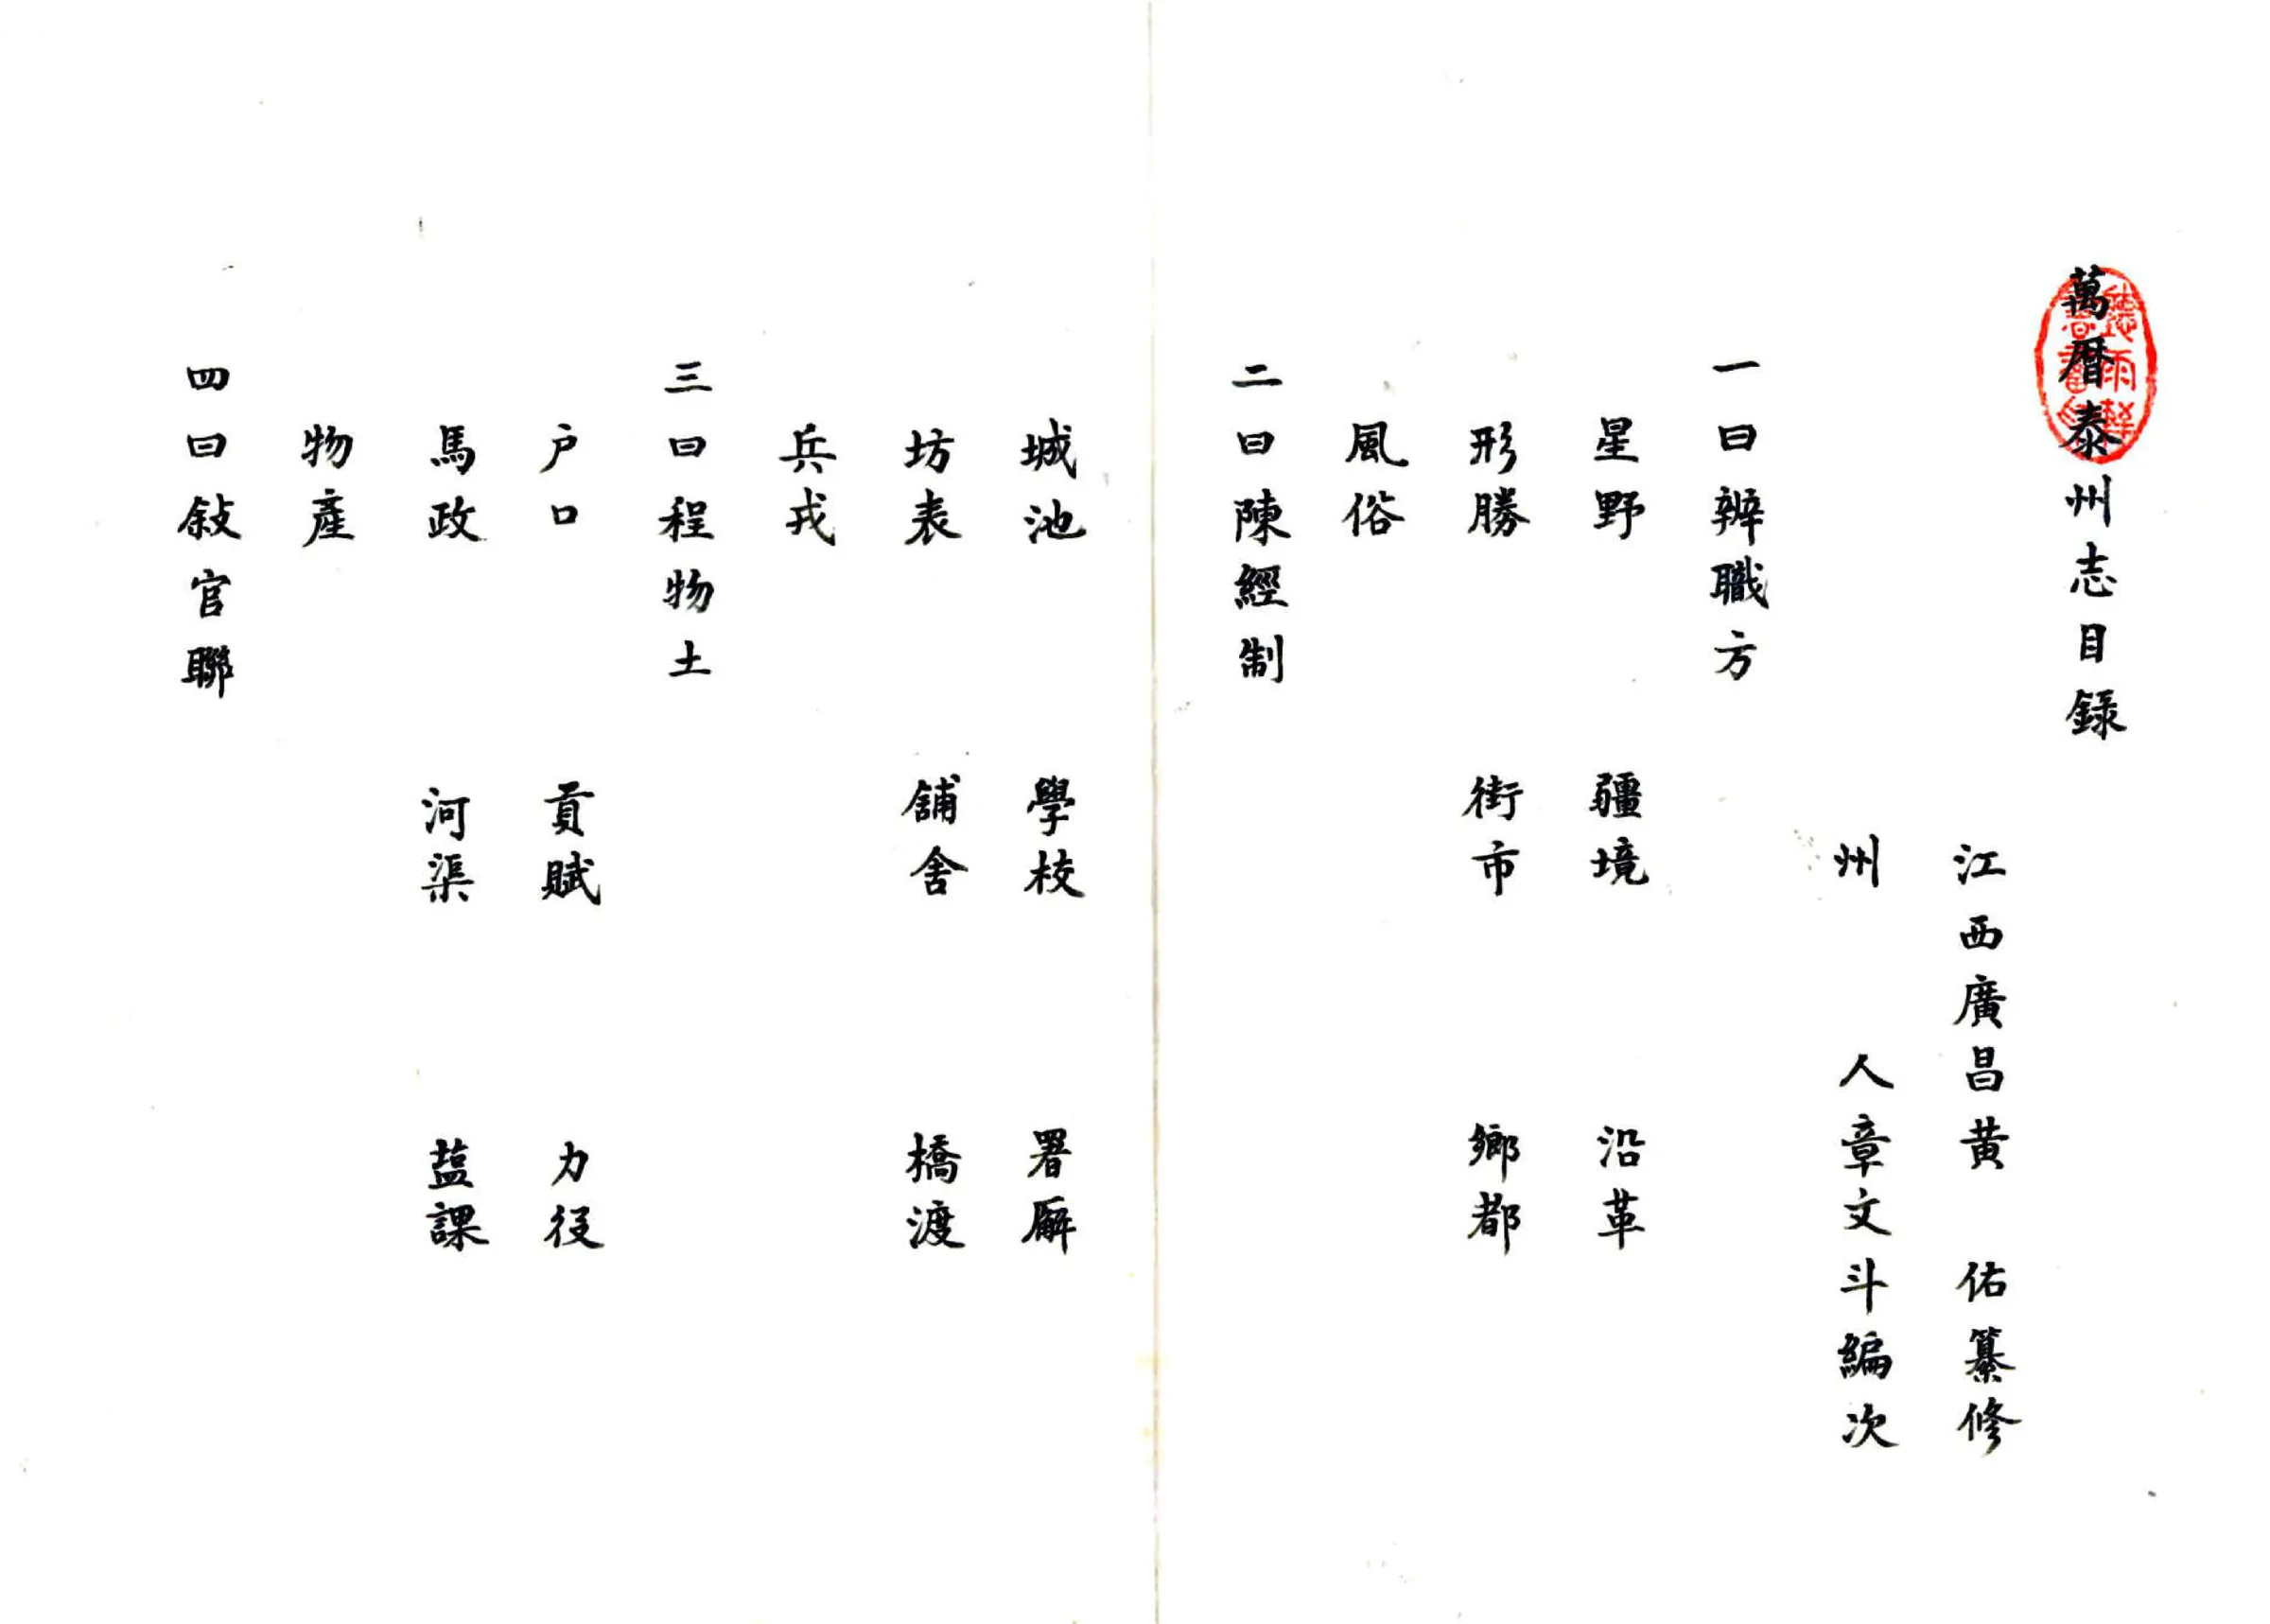 萬曆泰州志目錄
江西廣昌黃　佑纂修
州　　人章文斗編次
一曰辨職方
星野　　　疆境　　　沿革
形勝　　　街市　　　鄉都
風俗
二曰陳經制
城池　　　學校　　　署廨
坊表　　　舖舍　　　橋渡
兵戎
三曰程物土
户口　　　貢賦　　　力役
馬政　　　河渠　　　盐課
物產
四曰敍官聯